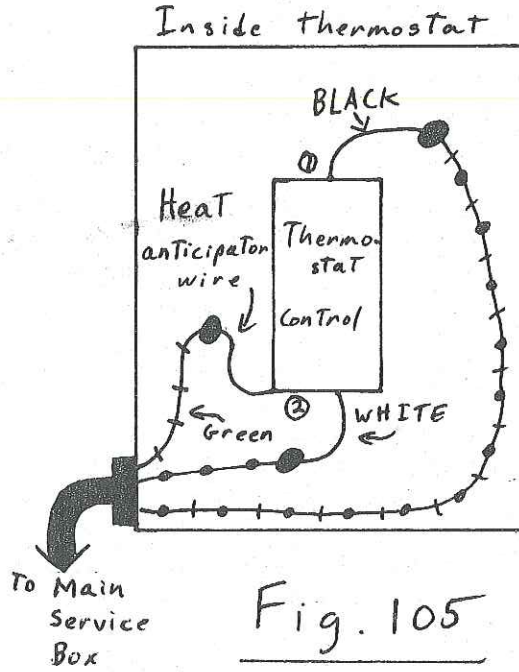 Inside thermostat
BLACK
①
Heat
anticipator
wire
Thermo-
stat
control
②
Green
WHITE
To Main
Service
Box
Fig. 105